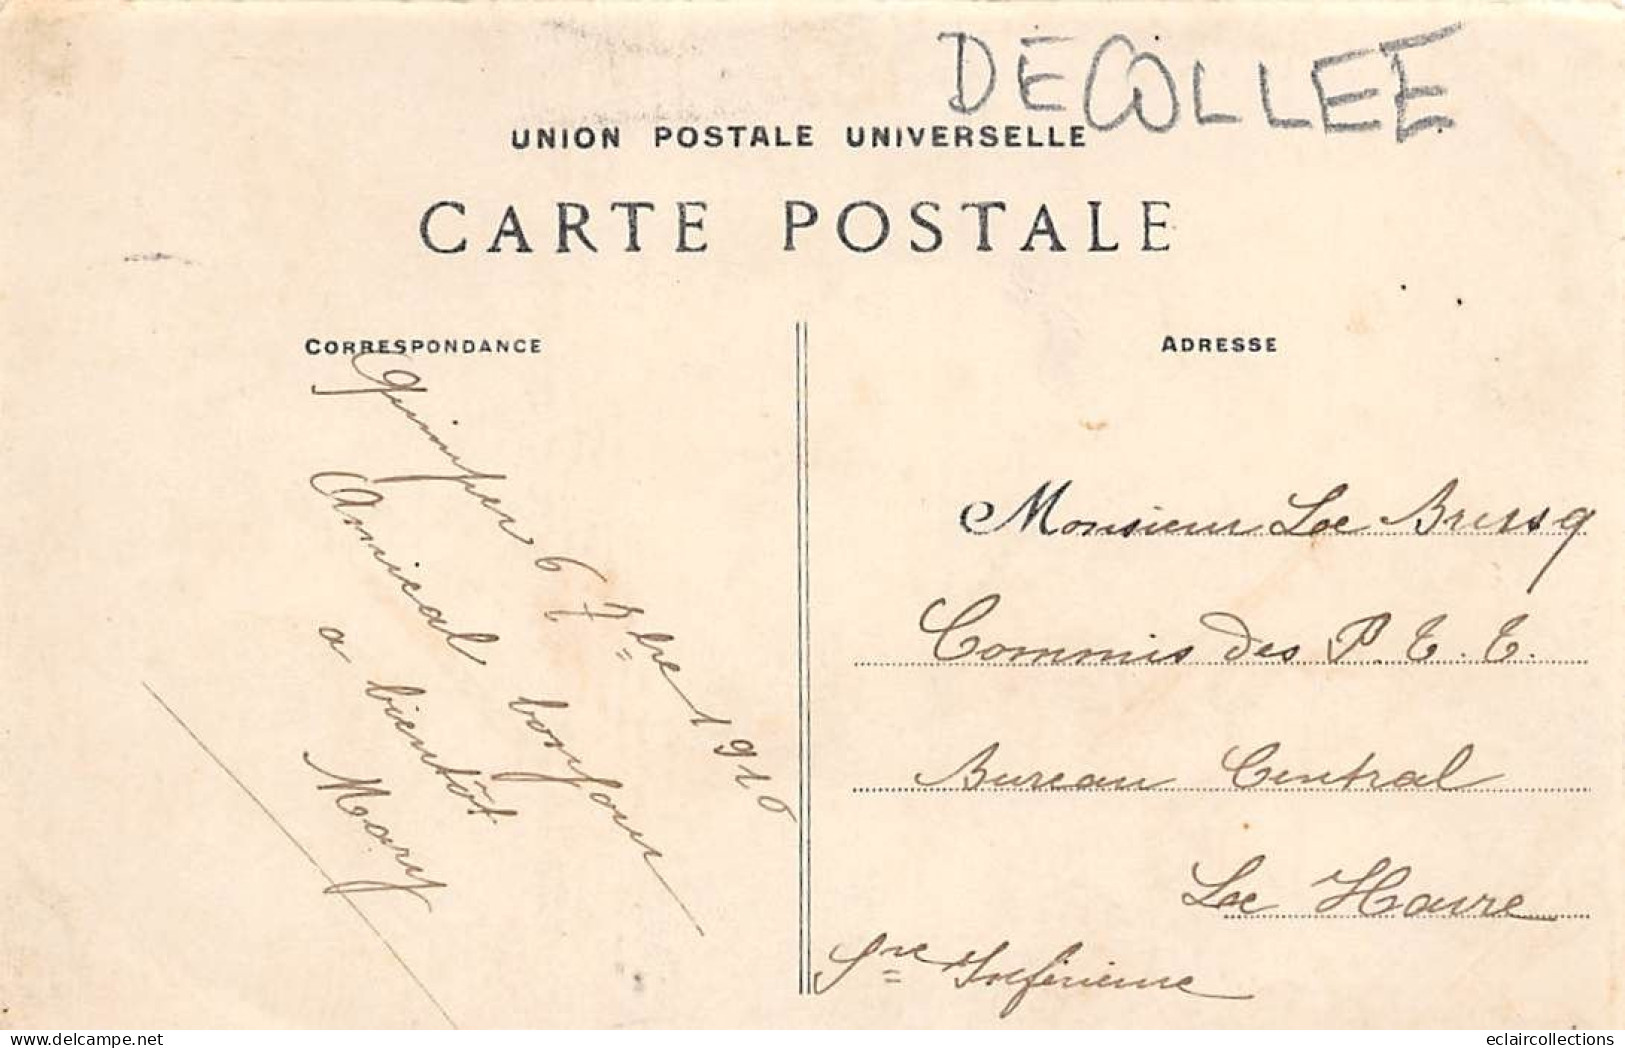 DÉCOLLÉE
UNION POSTALE UNIVERSELLE
CARTE POSTALE
CORRESPONDANCE
Quimper 6 7bre 1910
Amical bonjour
a bientôt
Mary
ADRESSE
Monsieur Le
Commis des P.T.T.
Bureau Central
Le Havre
Sre Inférieure
delcampe.net
eclaircollections